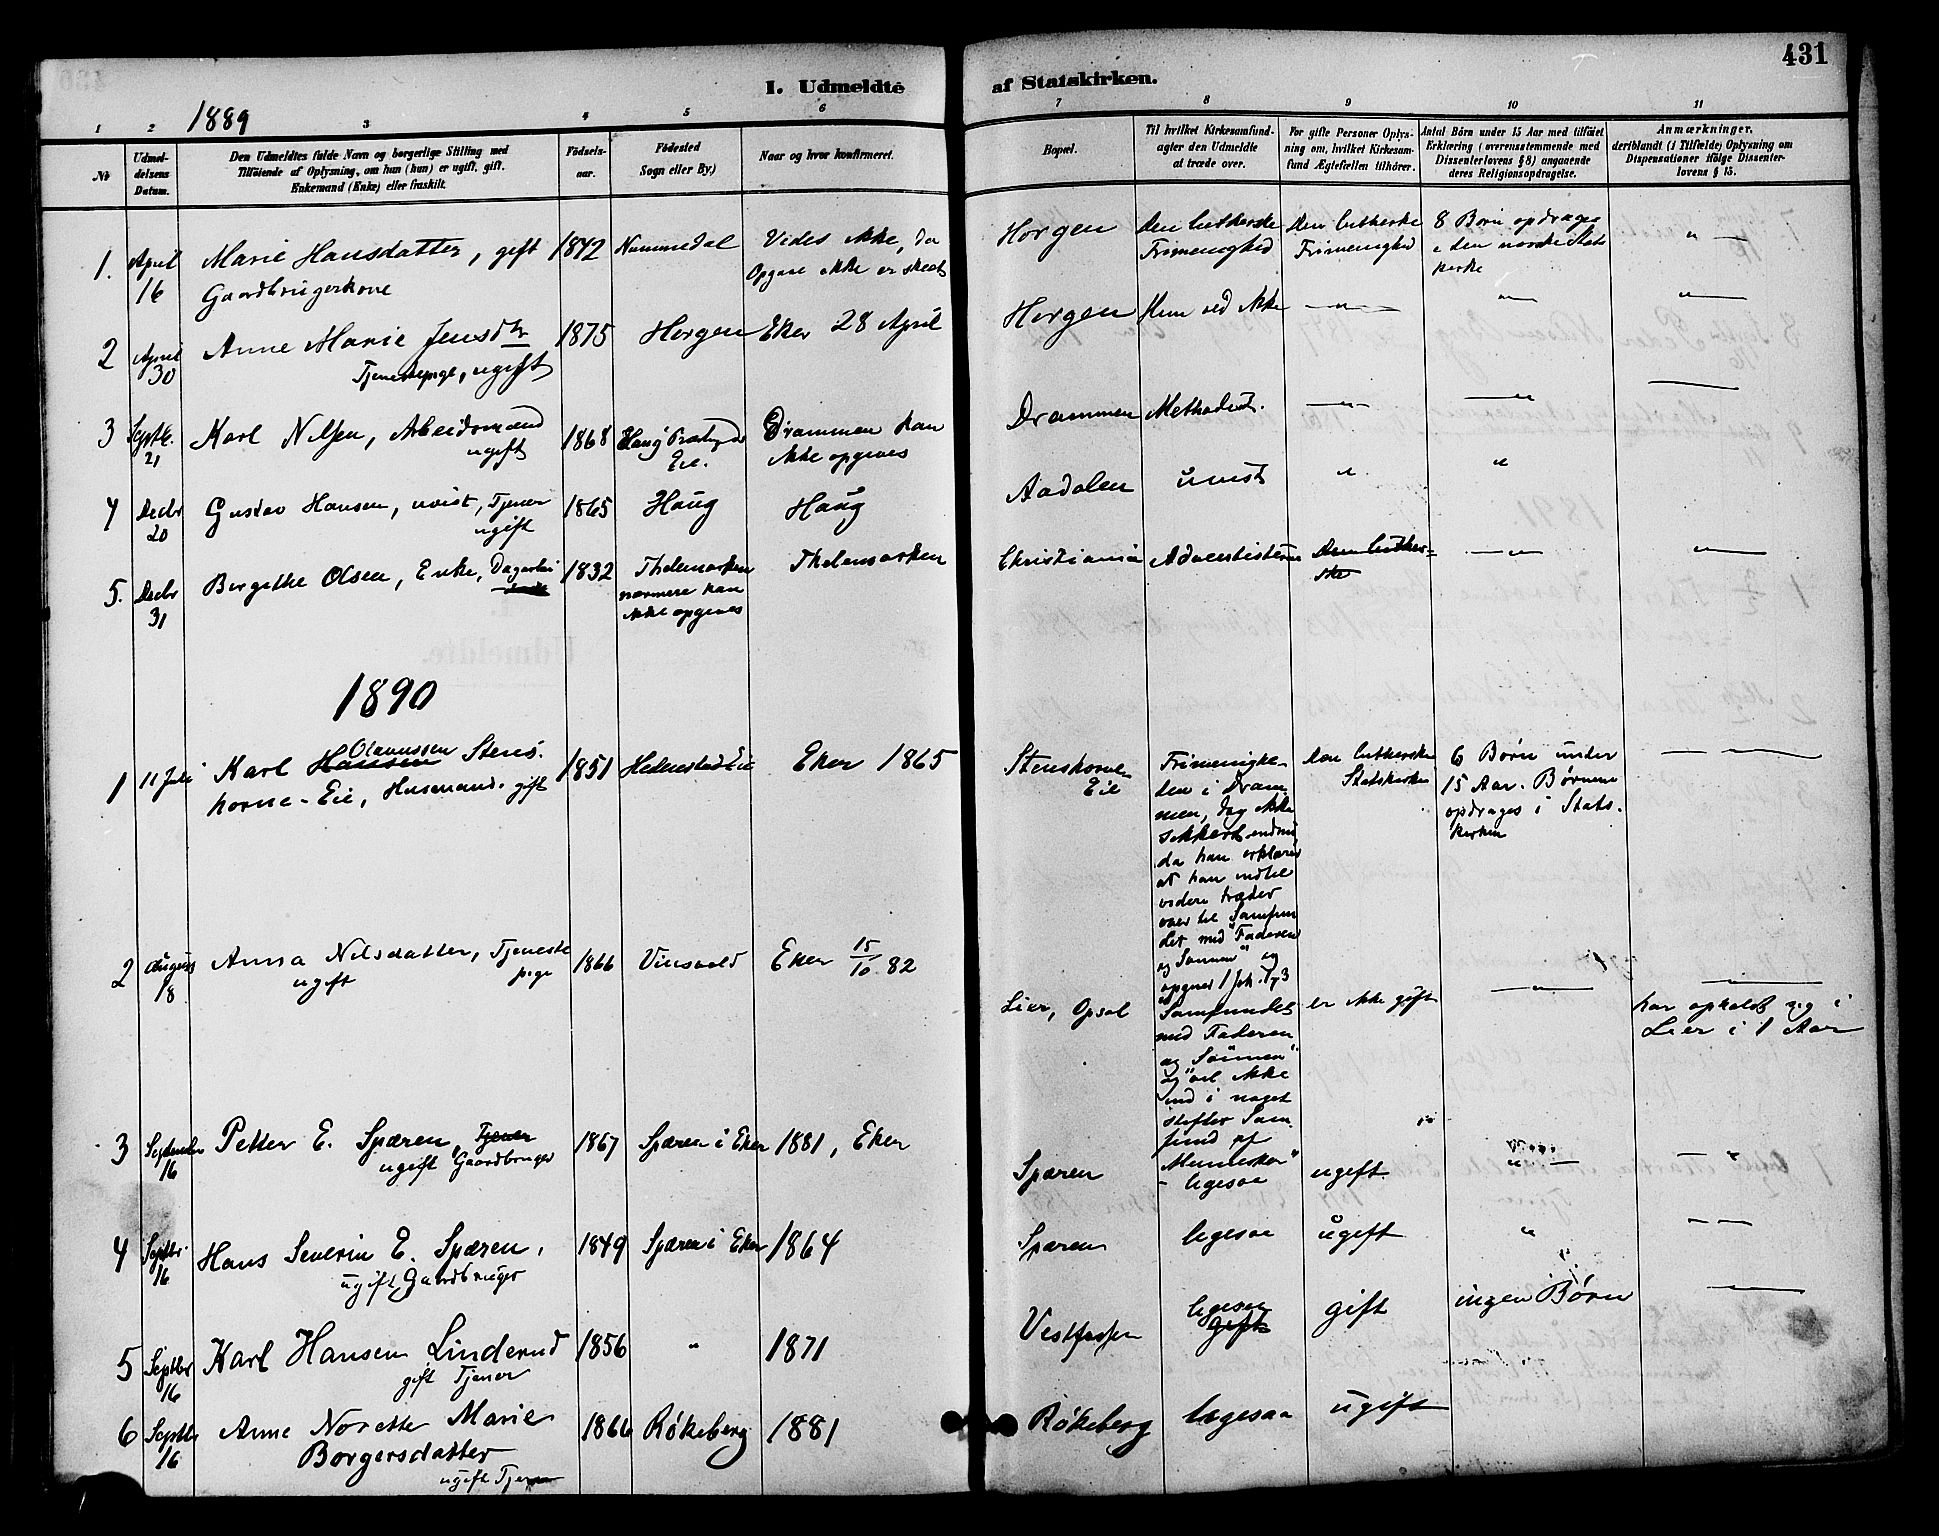 431
I. Udmeldte af Statskirken.
1889
1 2 3 4 5 6 7 8 9 10 11
Nr
Udmel-
delsens
Datum.
Den Udmeldtes fulde Navn og borgerlige Stilling med
Tilföiende af Oplysning, om han (hun) er ugift, gift,
Enkemand (Enke) eller fraskilt.
Födsels-
aar.
Födested
Sogn eller By.)
Naar og hvor konfirmeret.
Bopæl.
Til hvilket Kirkesamfund
agter den Udmeldte
at træde over.
For gifte Personer Oplys-
ning om, hvilket Kirkesam-
fund Ægtefællen tilhörer.
Antal Börn under 15 Aar med tilföiet
Erklæring (overensstemmende med
Dissenterlovens § 8) angaaende
deres Religionsopdragelse.
Anmærkninger.
deriblandt (i Tilfælde) Oplysning om
Dispensationer ifölge Dissenter-
lovens § 15.
1. April 16
Marie Hansdatter, gift
Gaardbrugerkone
1842
Nummedal
Vides ikke, da
Opgave ikke er skeet
Horgen
Den lutherske
Frimenighed
Den lutherske
Frimenighed
8 Børn opdrages
i den norske Stats
kirke
2 April 30
Anne Marie Jensdtr
Tjenestepige, ugift
1875
Horgen
Eker 28 April
Horgen
Hun ved ikke
3 Septbr. 21
Karl Nilsen, Arbeidsmand
ugift
1868
Haug
Eie.
Drammen kan
ikke opgives
Drammen
Methodist.
4 Decbr 20
Gustav Hansen, uvist, Tjener
ugift
1865
Haug
Haug
Aadalen
uvist
5. Decbr 31
Bergithe Olsen, Enke,
1832
Thelemarken
nærmere kan
ikke opgives
Thelemarken
Christiania
Adventisterne
Den luther-
ske
1890
1 11 Juli
Karl Hansen Olavussen Stens-
horne-Eie, Husmand. gift
1851
Hedenstad Eie
Eker 1865
Stenshorne
Eie
Frimenighe-
den i Dram-
men, dog ikke
sikkert endnu,
da han erklærer
at han indtil
videre træder
over til Samfun
det med "Faderen
og Sønnen" og
opgiver 1 Joh. 1,3
Den lutherske
Statskirke
6 Børn under
15 Aar. Børnene
opdrages i Stats-
kirken
2 August 18
Anna Nilsdatter, Tjeneste
pige
ugift
1866
Vinsvold
Eker 15/10 82
Lier, Opsal
Samfundet
med Faderen
og Sønnen"
og "vil ikke
ind i noget
stiftet Sam-
fund af
Mennesker"
er ikke gift
har opholdt sig i
Lier i 1 Aar
3 September 16
Petter E. Spæren, Tjener
ugift Gaardbruger
1867
Spæren i Eker
1881, Eker
Spæren
ligesaa
ugift.
4 Septbr. 16
Hans Severin E. Spæren,
ugift, Gaardbruger
1849
Spæren i Eker
1864
Spæren
ligesaa
ugift
5 Septbr 16
Karl Hansen Linderud
gift Tjener
1856
"
1871
Vestfossen
ligesaa
gift
gift
ingen Børn
6 Septbr 16
Anne Norette Marie
Borgersdatter
ugift Tjener
1866
Røkeberg
1881
Røkeberg
ligesaa
ugift